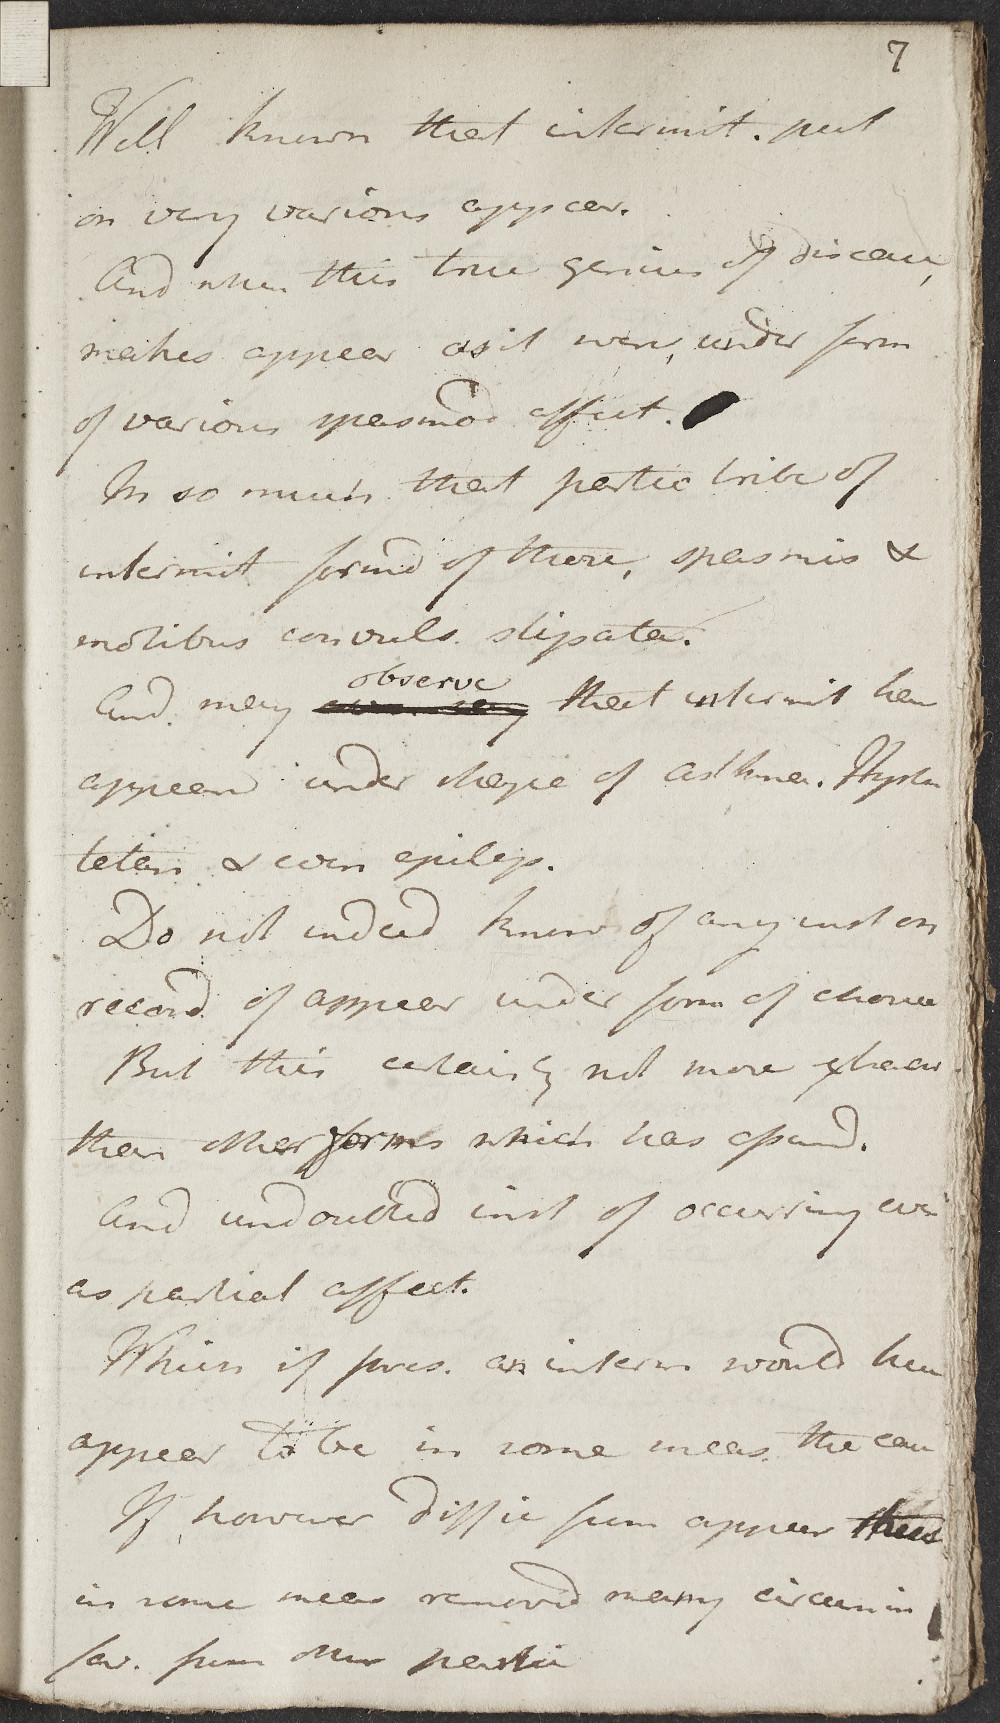 7
Well known that intermit. put
on very various appear.
And when this true genius of disease,
makes appear as it were, under form
of various spasmod affect.
In so much that partic tribe of
intermit formd of these, spasmis &
motibus convuls. stipata.
And may observe that intermit have
appeard under shape of asthma. Hyster
tetan & even epilep.
Do not indeed know of any inst on
record of appear under form of chorea
But this certainly not more
than other forms which has assumd.
And undoubted inst of occurring even
as partial affect.
Which if pres. an interm would here
appear to be in some meas. the case
If however diffic from appear thus
in some meas removd many circum in
fav. from other partic